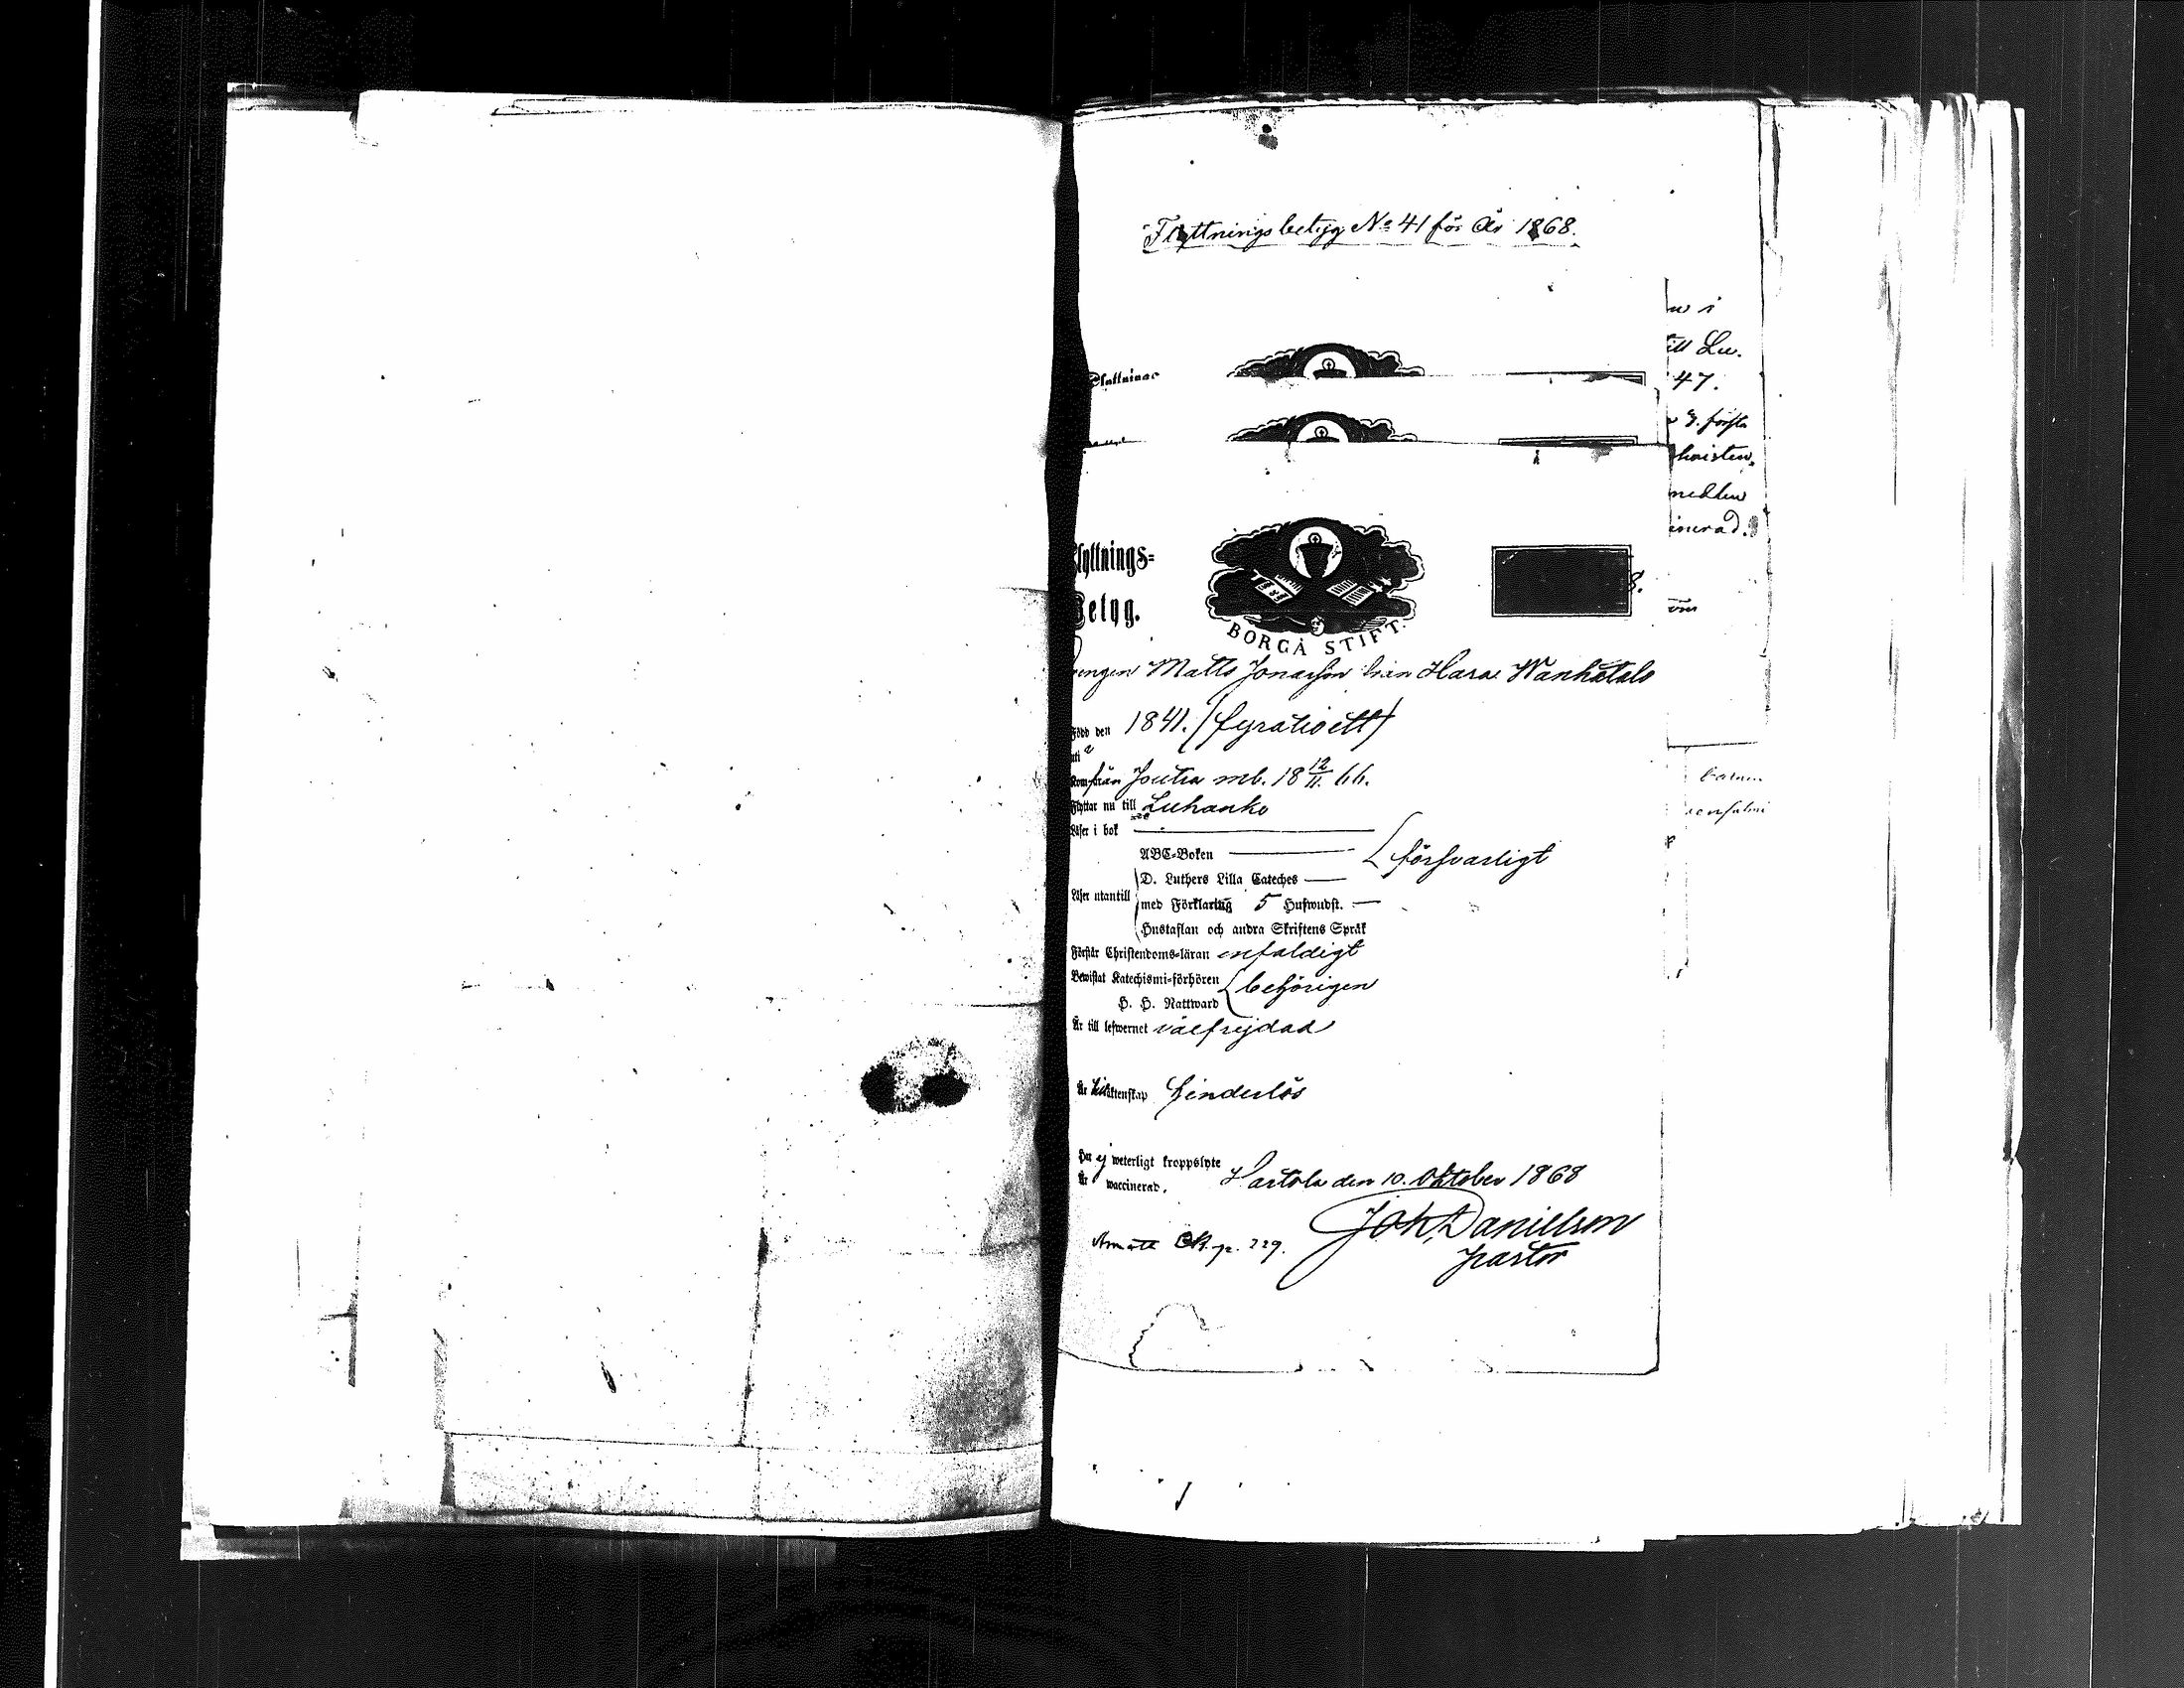 Flyttningsbetyg No 41 för år 1868.
Flyttnings=
Betyg.
BORGÅ STIFT.
8.
Drengen Matts Jonasson från Hara Wanhatalo
Född den 1841. (fyratioett)
uti
Kom från Joutsa mb. 18 12/11. 66.
Flyttar nu till Luhanko
Läser i bok
ABC=Boken
försvarligt
D. Luthers Lilla Cateches
Läser utantill
med Förklaring 5 Hufwudst.
Hustaflan och andra Skriftens Språk
Förstår Christendoms=läran enfaldigt
Bewistat Katechismi=förhören
behörigen
H. H. Nattward
Är till lefwernet välfrejdad
Är till äktenskap hinderlös
Har ej weterligt kroppslyte
Är waccinerad.
Hartola den 10. Oktober 1868
Joh. Danielson
pastor
p. 229.
till Lu.
47.
första